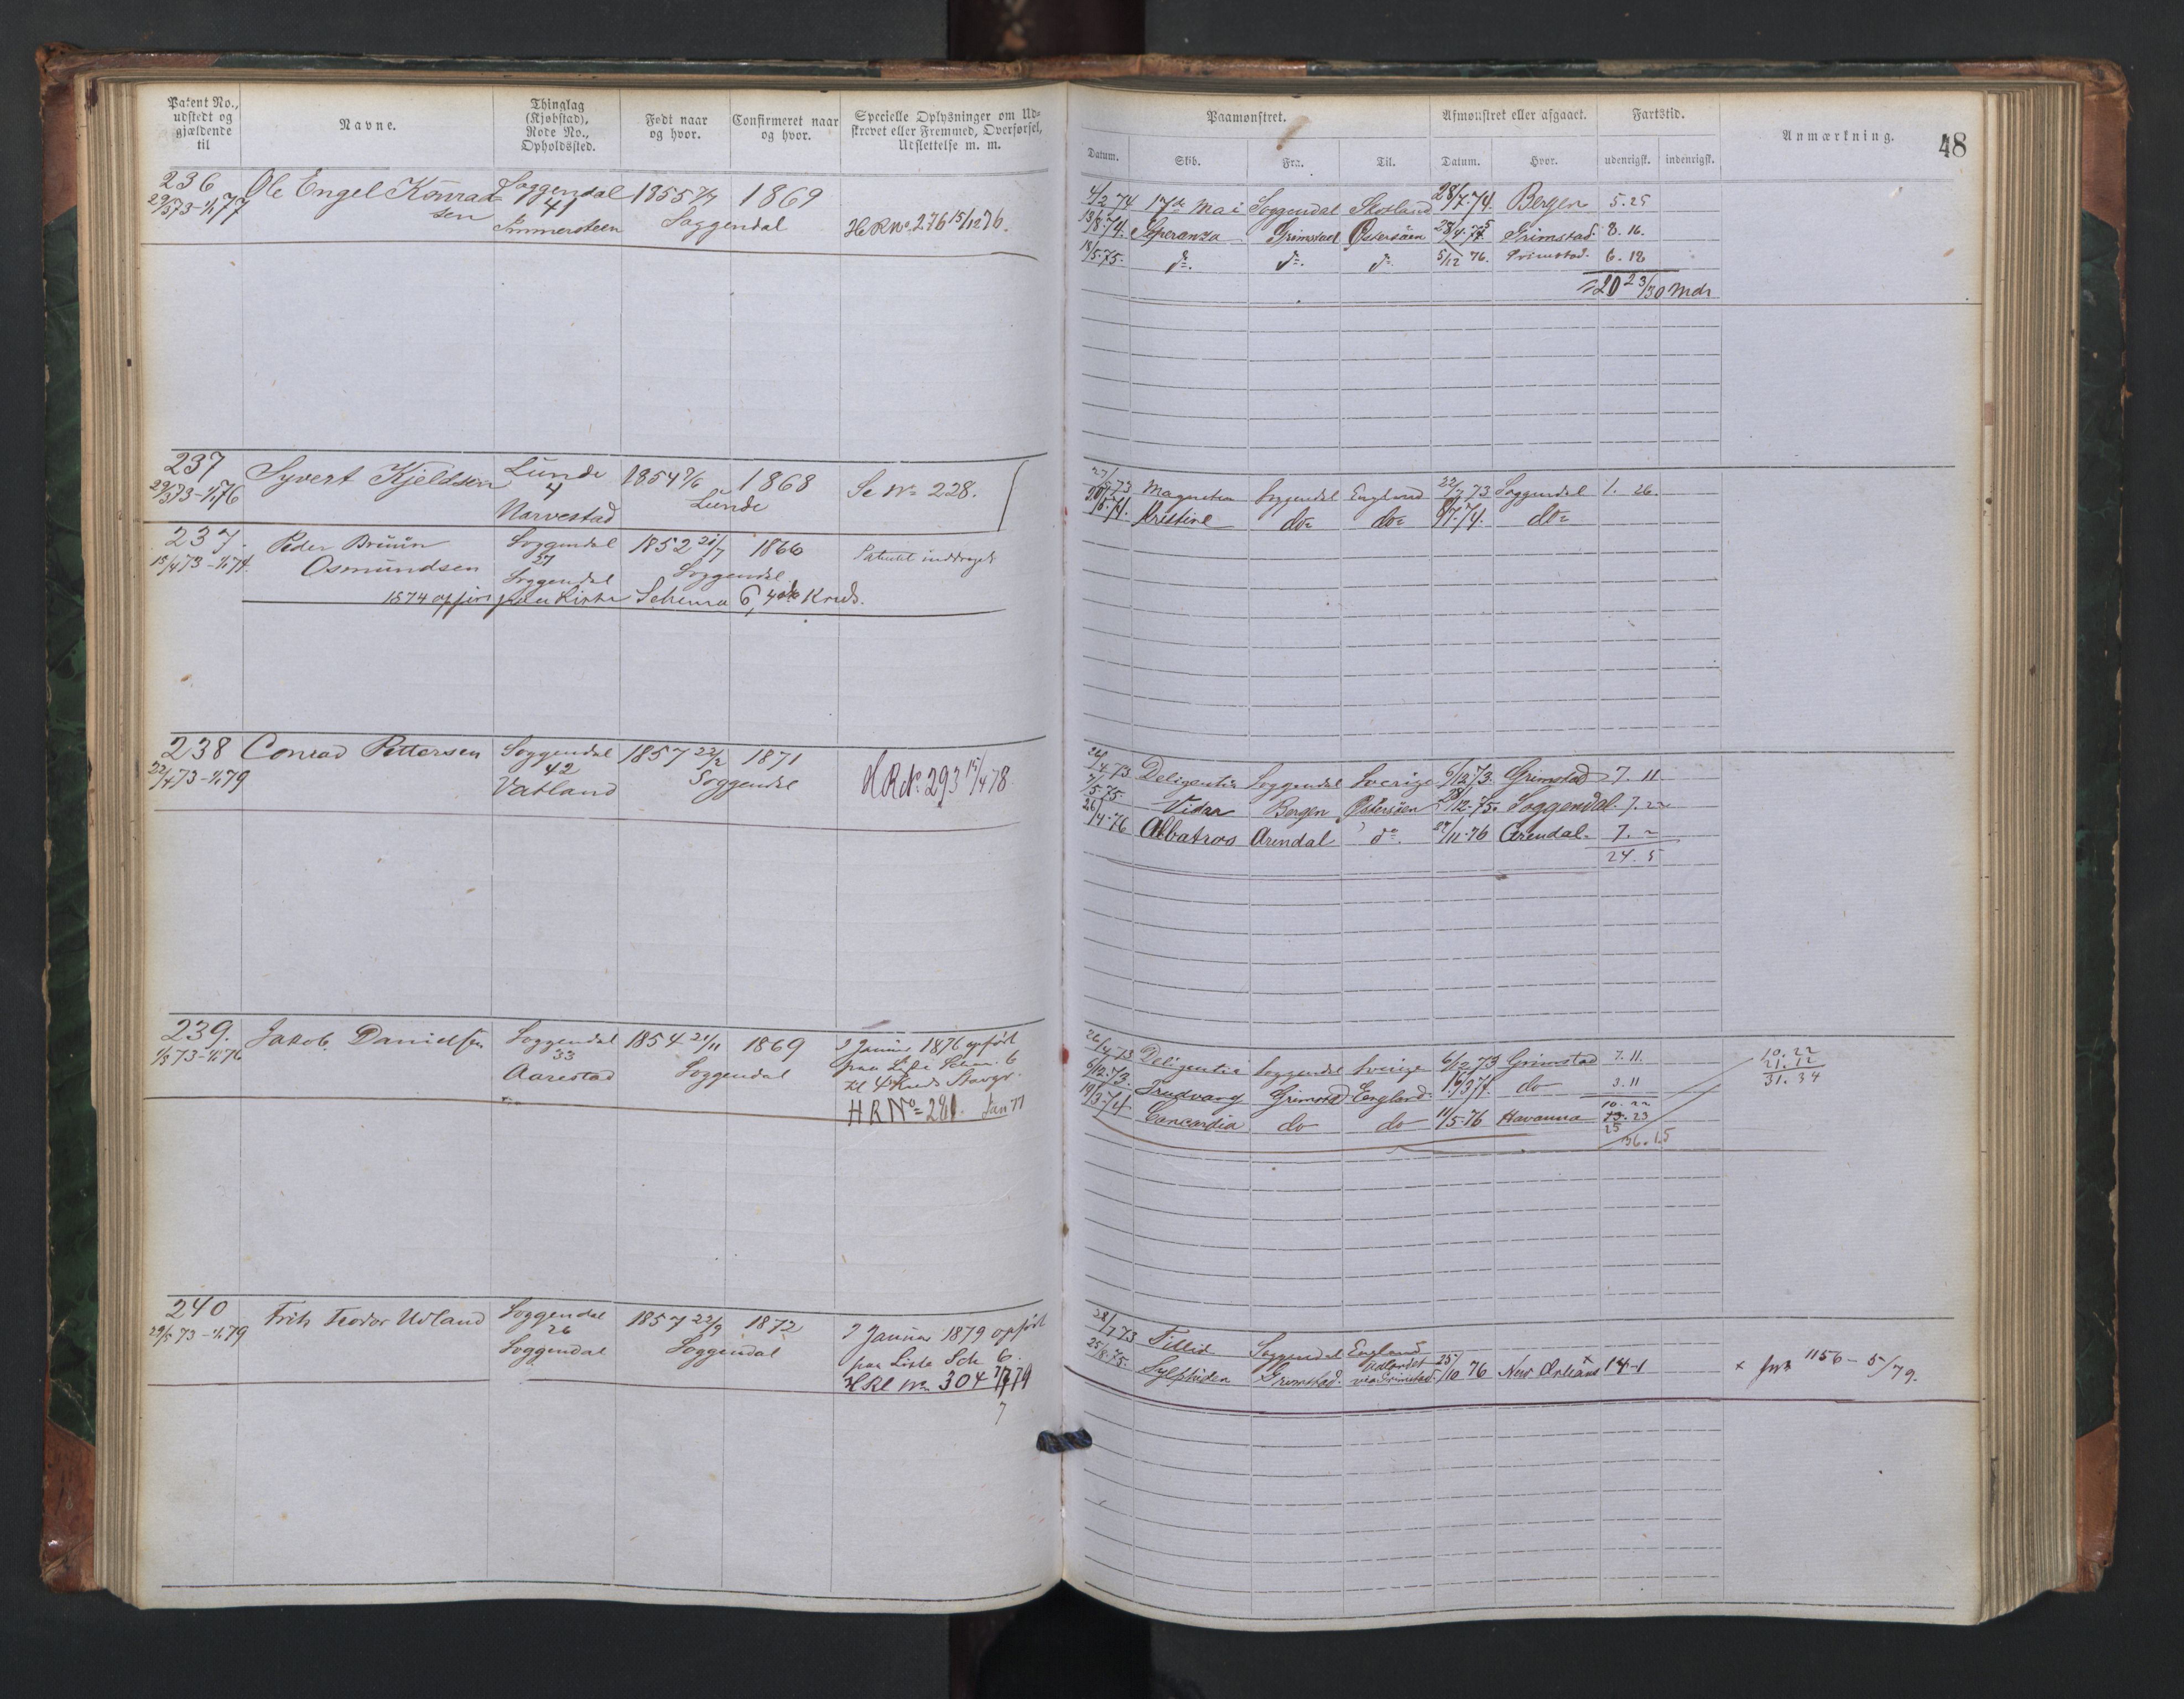 Patent No., udstedt og gjældende til
Navne.
Thinglag (Kjøbstad), Rode No., Opholdssted.
Født naar og hvor.
Confirmeret naar og hvor.
Specielle Oplysninger om Udskrevet eller Fremmed, Overførsel, Udslettelse m. m.
Paamønstret.
Afmønstret eller afgaaet.
Fartstid.
Anmærkning.
48
Datum. Skib. Fra. Til. Datum. Hvor. udenrigsk. indenrigsk.
236 Ole Engel Konrad- Soggendal 1855 1869
29/3 73-1/1 77 sen 41 Soggendal
HRNo. 276 15/12 76.
4/2 74 17de Mai Soggendal Skotland 28/7 74. Bergen 5.25
13/8 74. Speranza Grimstad Østersøen 28/4 75 Grimstad 8.16.
18/5 75. do. do. do 5/12 76. Grimstad. 6.12
20 23/30 Mdr
237 Syvert Kjeldsen Lunde 1854 1868 Se No 228.
29/3 73-1/1 76 4 Lunde
Narvestad
73 Magnethea Soggendal England 22/7 73 Soggendal 1. 26.
74. Kristine do do 74. do
237. Peder Bruun Soggendal 1852 21/7 1866 Patentet inddraget
15/4 73-1/1 74. Osmundsen 27 Soggendal
Soggendal
1874 opført paa Liste Schema 6, 4de Kreds.
238 Conrad Pettersen Soggendal 1857 22/2 1871
22/4 73-1/1 79 42 Soggendal
Vatland
HRNo. 293 15/4 78
26/4 73 Deligentia Soggendal Sverige 6/12 73. Grimstad 7. 11
2/5 75. Vidar Bergen Østersøen 12.75. Soggendal. 7. 22
26/4 76 Albatros Arendal do. 27/11 76 Arendal. 7. 2
24. 5
239. Jakob Danielsen Soggendal 1854 21/11 1869 2 Januar 1876 opført
1/5 73-1/1 76 33 Soggendal paa Liste Schm. 6
Aarestad Kl 4 Kreds Stavgr.
HRNo 281. Jan 77
26/4 73 Deligentia Soggendal Sverige 6/12 73 Grimstad 7. 11.
6/12 73. Trudvang Grimstad England 16/3 74. do 3. 11
10. 22
19/3 74 Concordia do do 11/5 76 Havanna 73. 23
25
36. 15
10. 22
21. 12
31. 34
240 Frits Teodor Udland Soggendal 1857 22/9 1872 2 Januar 1879 opført
29/5 73-1/1 79 26 Soggendal paa Liste Sch. 6.
Soggendal HRl No 304 79
7
28/7 73 Tillid Soggendal England
25/8 75. Sylphiden Grimstad. Udlandet via Grimstad. 25/10 76 New Orleans x 14-1
x 1156 - 5/79.